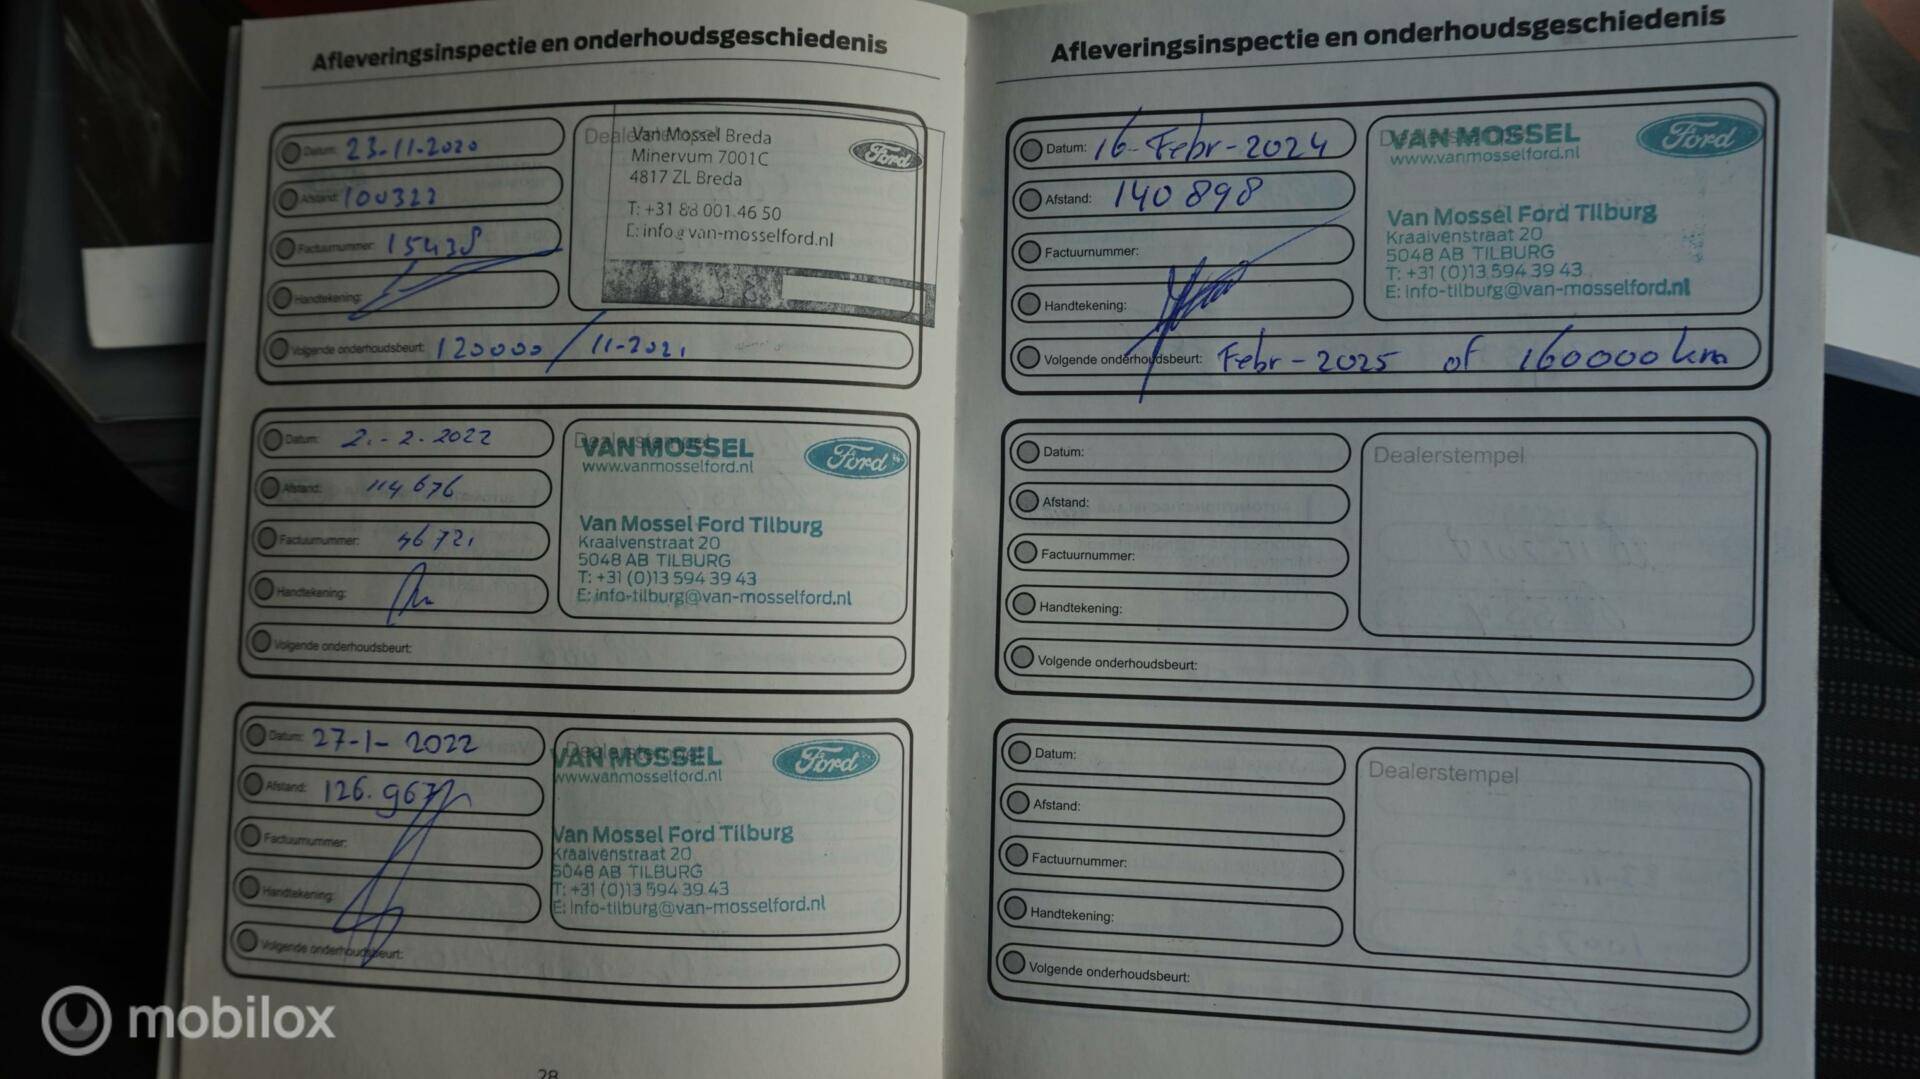 Afleveringsinspectie en onderhoudsgeschiedenis
Datum: 23-11-2020
Afstand: 100322
Factuurnummer: 15438
Handtekening:
Volgende onderhoudsbeurt: 120000 / 11-2021
Dealerstempel
Van Mossel Breda
Minervum 7001C
4817 ZL Breda
T: +31 88 001 46 50
E: info@van-mosselford.nl
Ford
Datum: 2-2-2022
Afstand: 114676
Factuurnummer: 46721
Handtekening:
Volgende onderhoudsbeurt:
Dealerstempel
VAN MOSSEL
www.vanmosselford.nl
Ford
Van Mossel Ford Tilburg
Kraaivenstraat 20
5048 AB TILBURG
T: +31 (0)13 594 39 43
E: info-tilburg@van-mosselford.nl
Datum: 27-1-2022
Afstand: 126.967
Factuurnummer:
Handtekening:
Volgende onderhoudsbeurt:
Dealerstempel
VAN MOSSEL
www.vanmosselford.nl
Ford
Van Mossel Ford Tilburg
Kraaivenstraat 20
5048 AB TILBURG
T: +31 (0)13 594 39 43
E: info-tilburg@van-mosselford.nl
28
Afleveringsinspectie en onderhoudsgeschiedenis
Datum: 16-Febr-2024
Afstand: 140898
Factuurnummer:
Handtekening:
Volgende onderhoudsbeurt: Febr-2025 of 160000 km
Dealerstempel
VAN MOSSEL
www.vanmosselford.nl
Ford
Van Mossel Ford Tilburg
Kraaivenstraat 20
5048 AB TILBURG
T: +31 (0)13 594 39 43
E: info-tilburg@van-mosselford.nl
Datum:
Afstand:
Factuurnummer:
Handtekening:
Volgende onderhoudsbeurt:
Dealerstempel
Datum:
Afstand:
Factuurnummer:
Handtekening:
Volgende onderhoudsbeurt:
Dealerstempel
mobilox